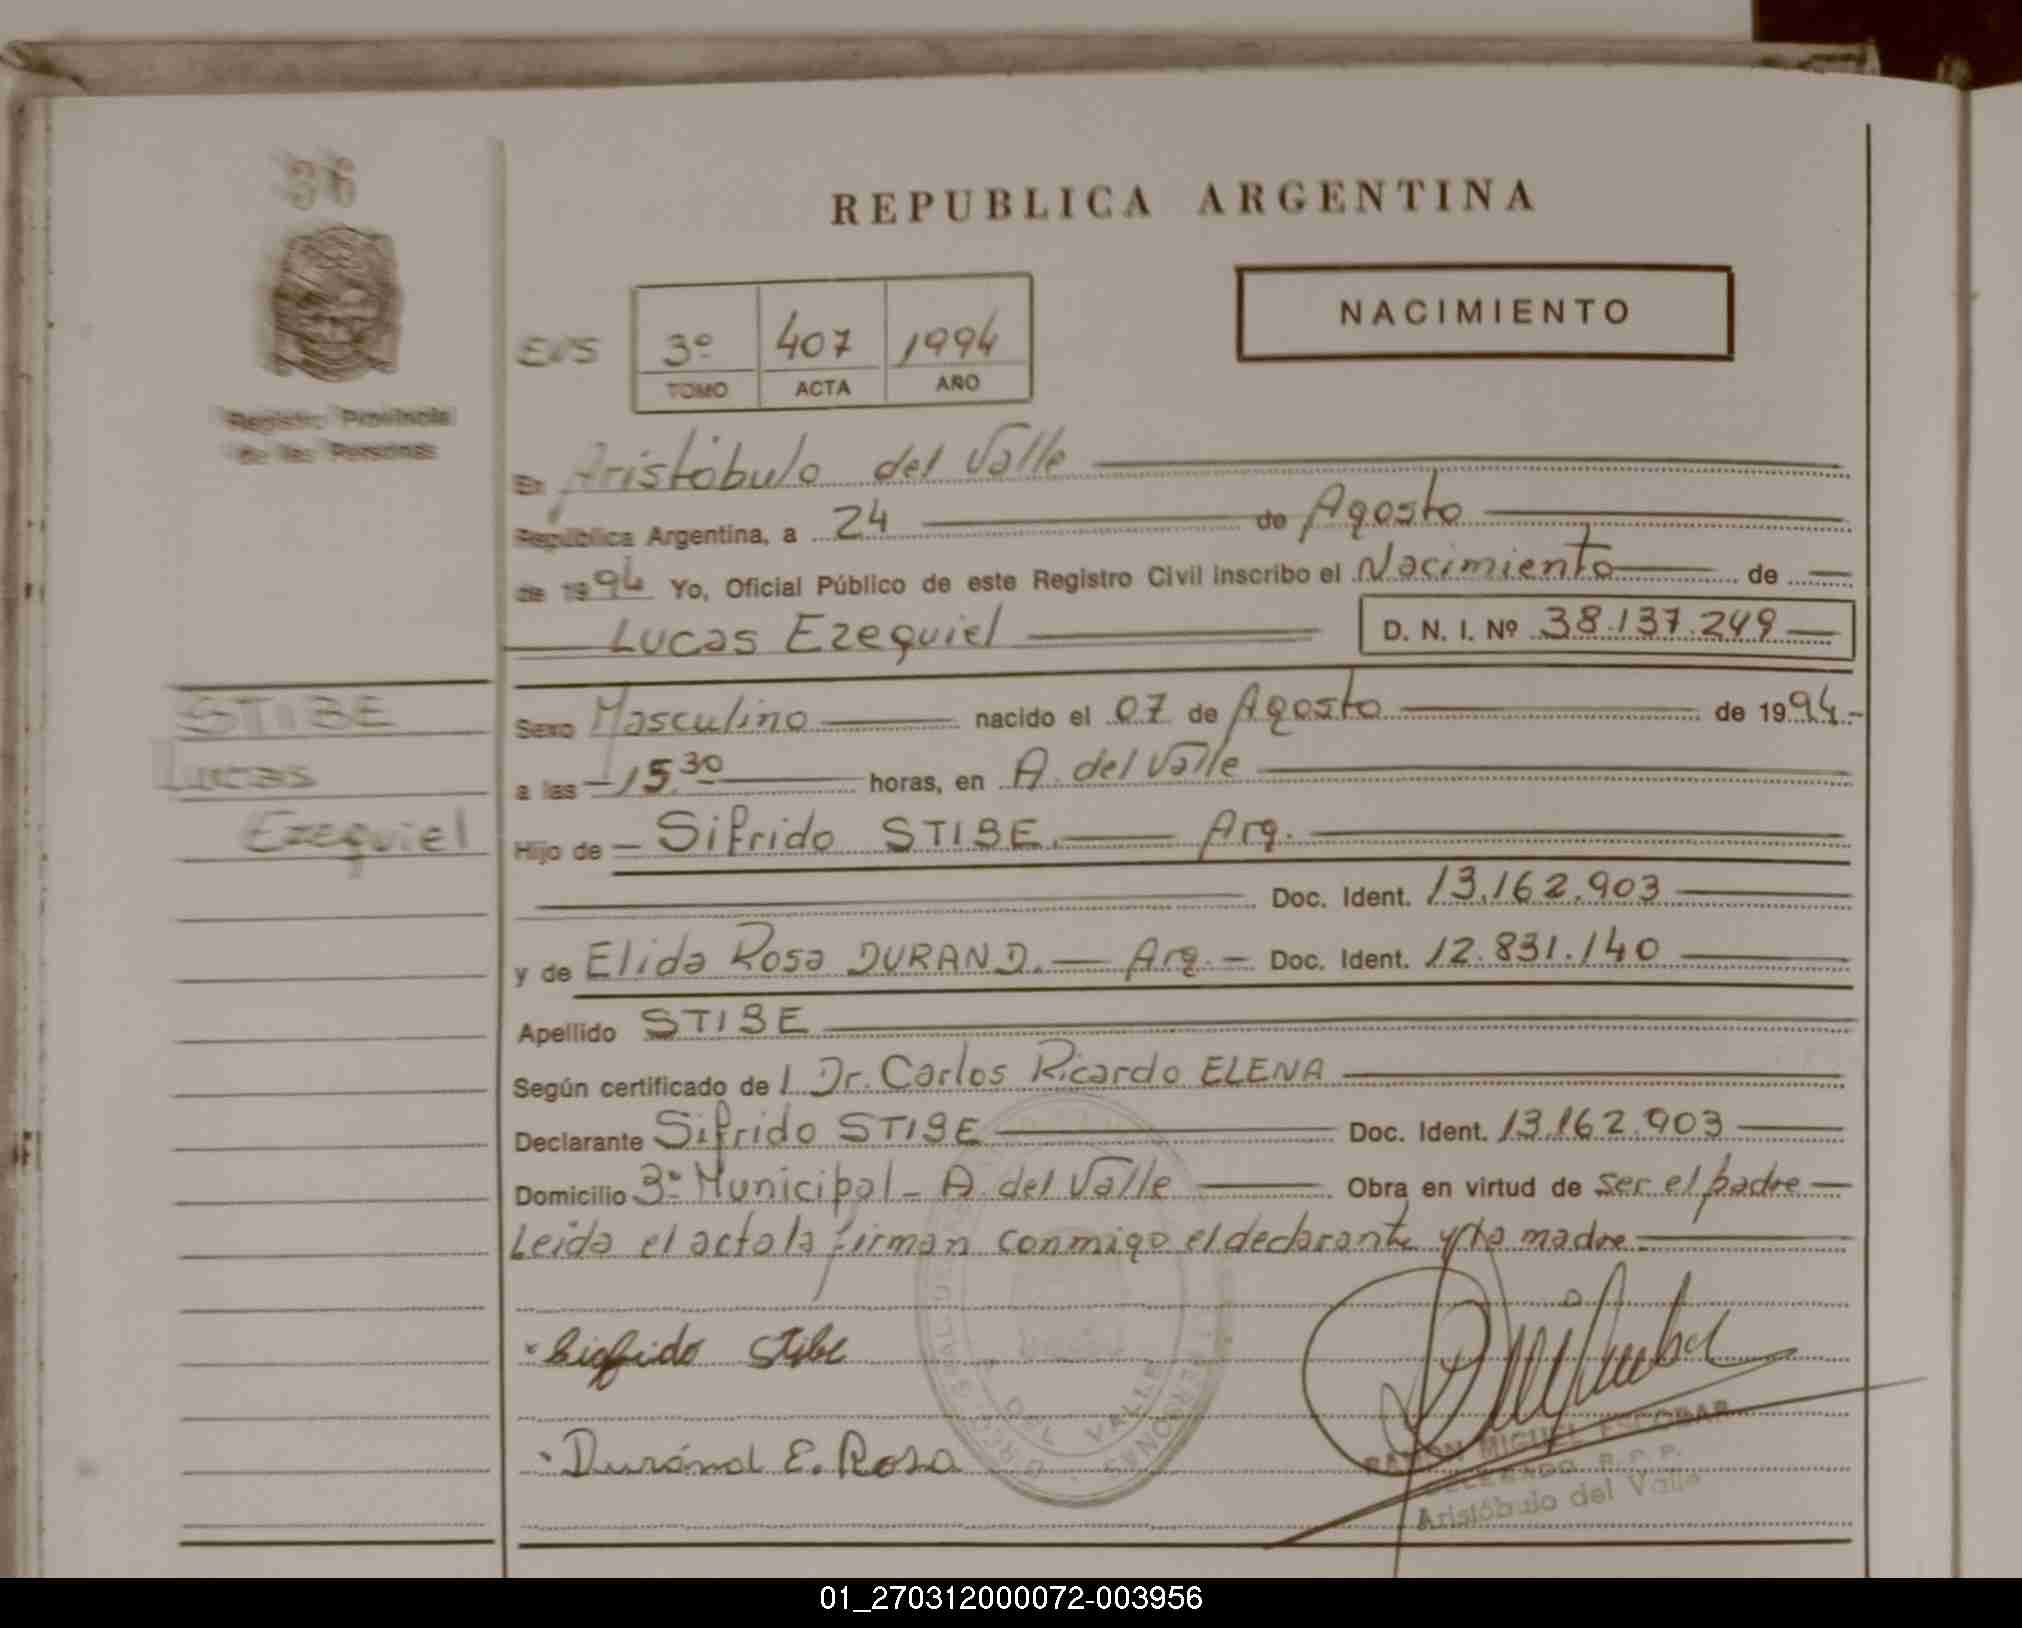 36
REPUBLICA ARGENTINA
NACIMIENTO
EVS 3º 407 1994
TOMO ACTA AÑO
Registro Provincial
de las Personas
En Aristóbulo del Valle
República Argentina, a 24 de Agosto
de 1994 Yo, Oficial Público de este Registro Civil inscribo el Nacimiento de
Lucas Ezequiel D. N. I. Nº 38.137.249
STIBE
Lucas
Ezequiel
Sexo Masculino nacido el 07 de Agosto de 1994.-
a las 15.30 horas, en A. del Valle
Hijo de Sifrido STIBE. Arg.
Doc. Ident. 13.162.903
y de Elida Rosa DURAND. Arg. Doc. Ident. 12.831.140
Apellido STIBE
Según certificado de Dr. Carlos Ricardo ELENA
Declarante Sifrido STIBE Doc. Ident. 13.162.903
Domicilio 3º Municipal - A. del Valle Obra en virtud de ser el padre
Leida el acta la firman conmigo el declarante y la madre
Sigfrido Stibe
Duránd E. Rosa
RAMON MIGUEL ESCOBAR
DELEGADO R. P. P.
Aristóbulo del Valle
DEL VALLE
01_270312000072-003956